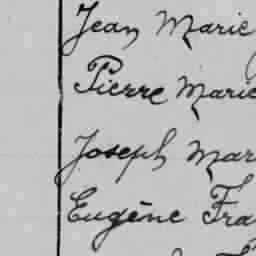 Jean Marie
Pierre Marie
Joseph Mar
Eugène Fra